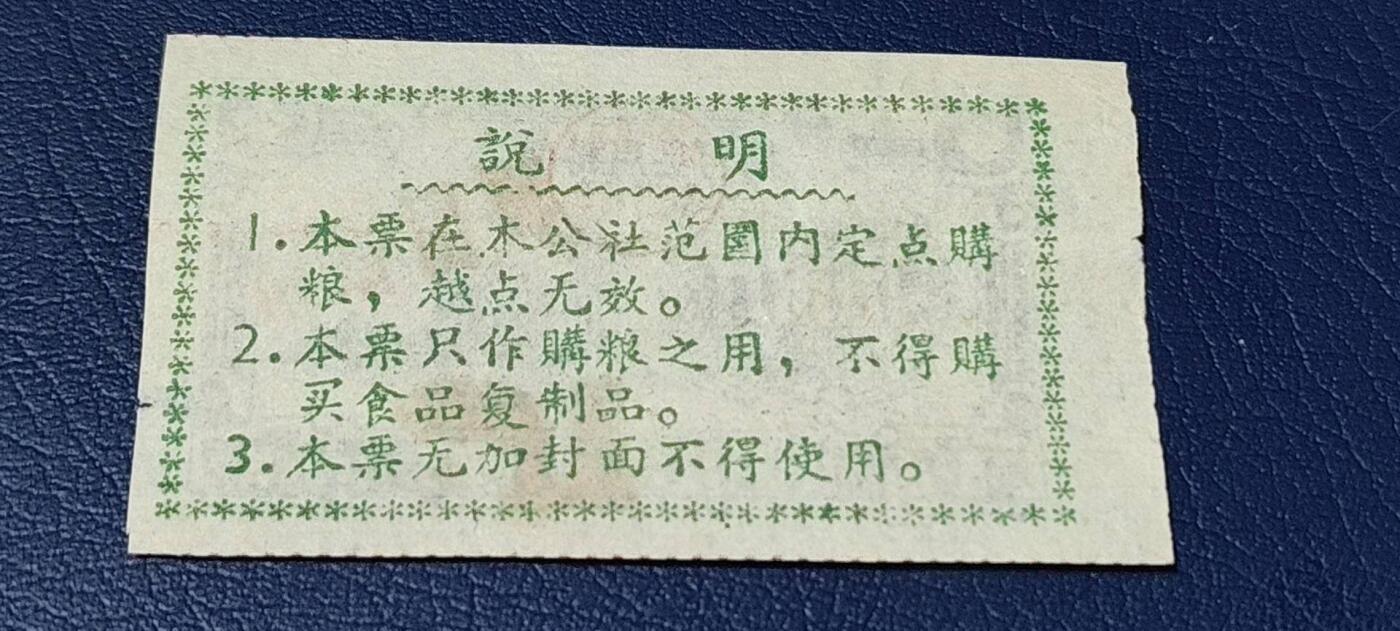 說 明
1.本票在木公社范圍内定点購
粮，越点无效。
2.本票只作購粮之用，不得購
买食品复制品。
3.本票无加封面不得使用。